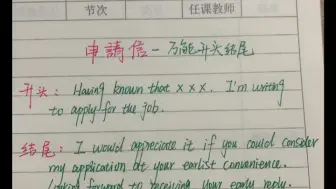 节次 任课教师
申請信－万能开头结尾
开头： Having known that x x x. I'm writing
to apply for the job.
结尾： I would appreciate it if you could consider
my application at your earlist convenience.
Looking forward to receiving your early reply.